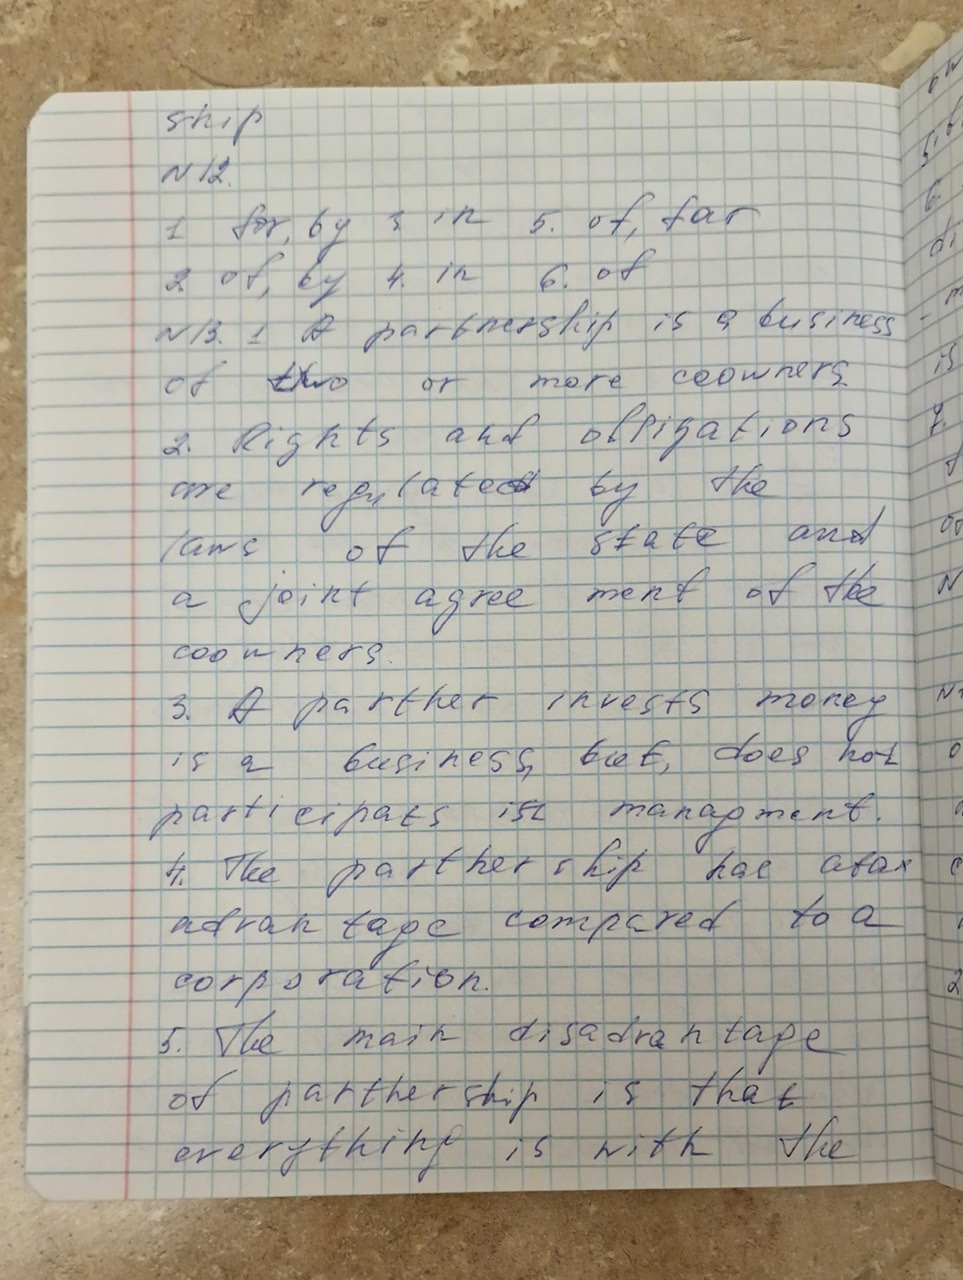 ship
N12.
1 for, by 3 in 5. of, for
2 of, by 4. in 6. of
N13. 1 A partnership is a business
of two or more coowners.
2. Rights and obligations
are regulated by the
laws of the state and
a joint agree ment of the
coowners.
3. A partner invests money
is a business, but, does not
participats in managment.
4. The partner ship has atax
advan tage compared to a
corporation.
5. The main disadvan tage
of partner ship is that
everything is with the